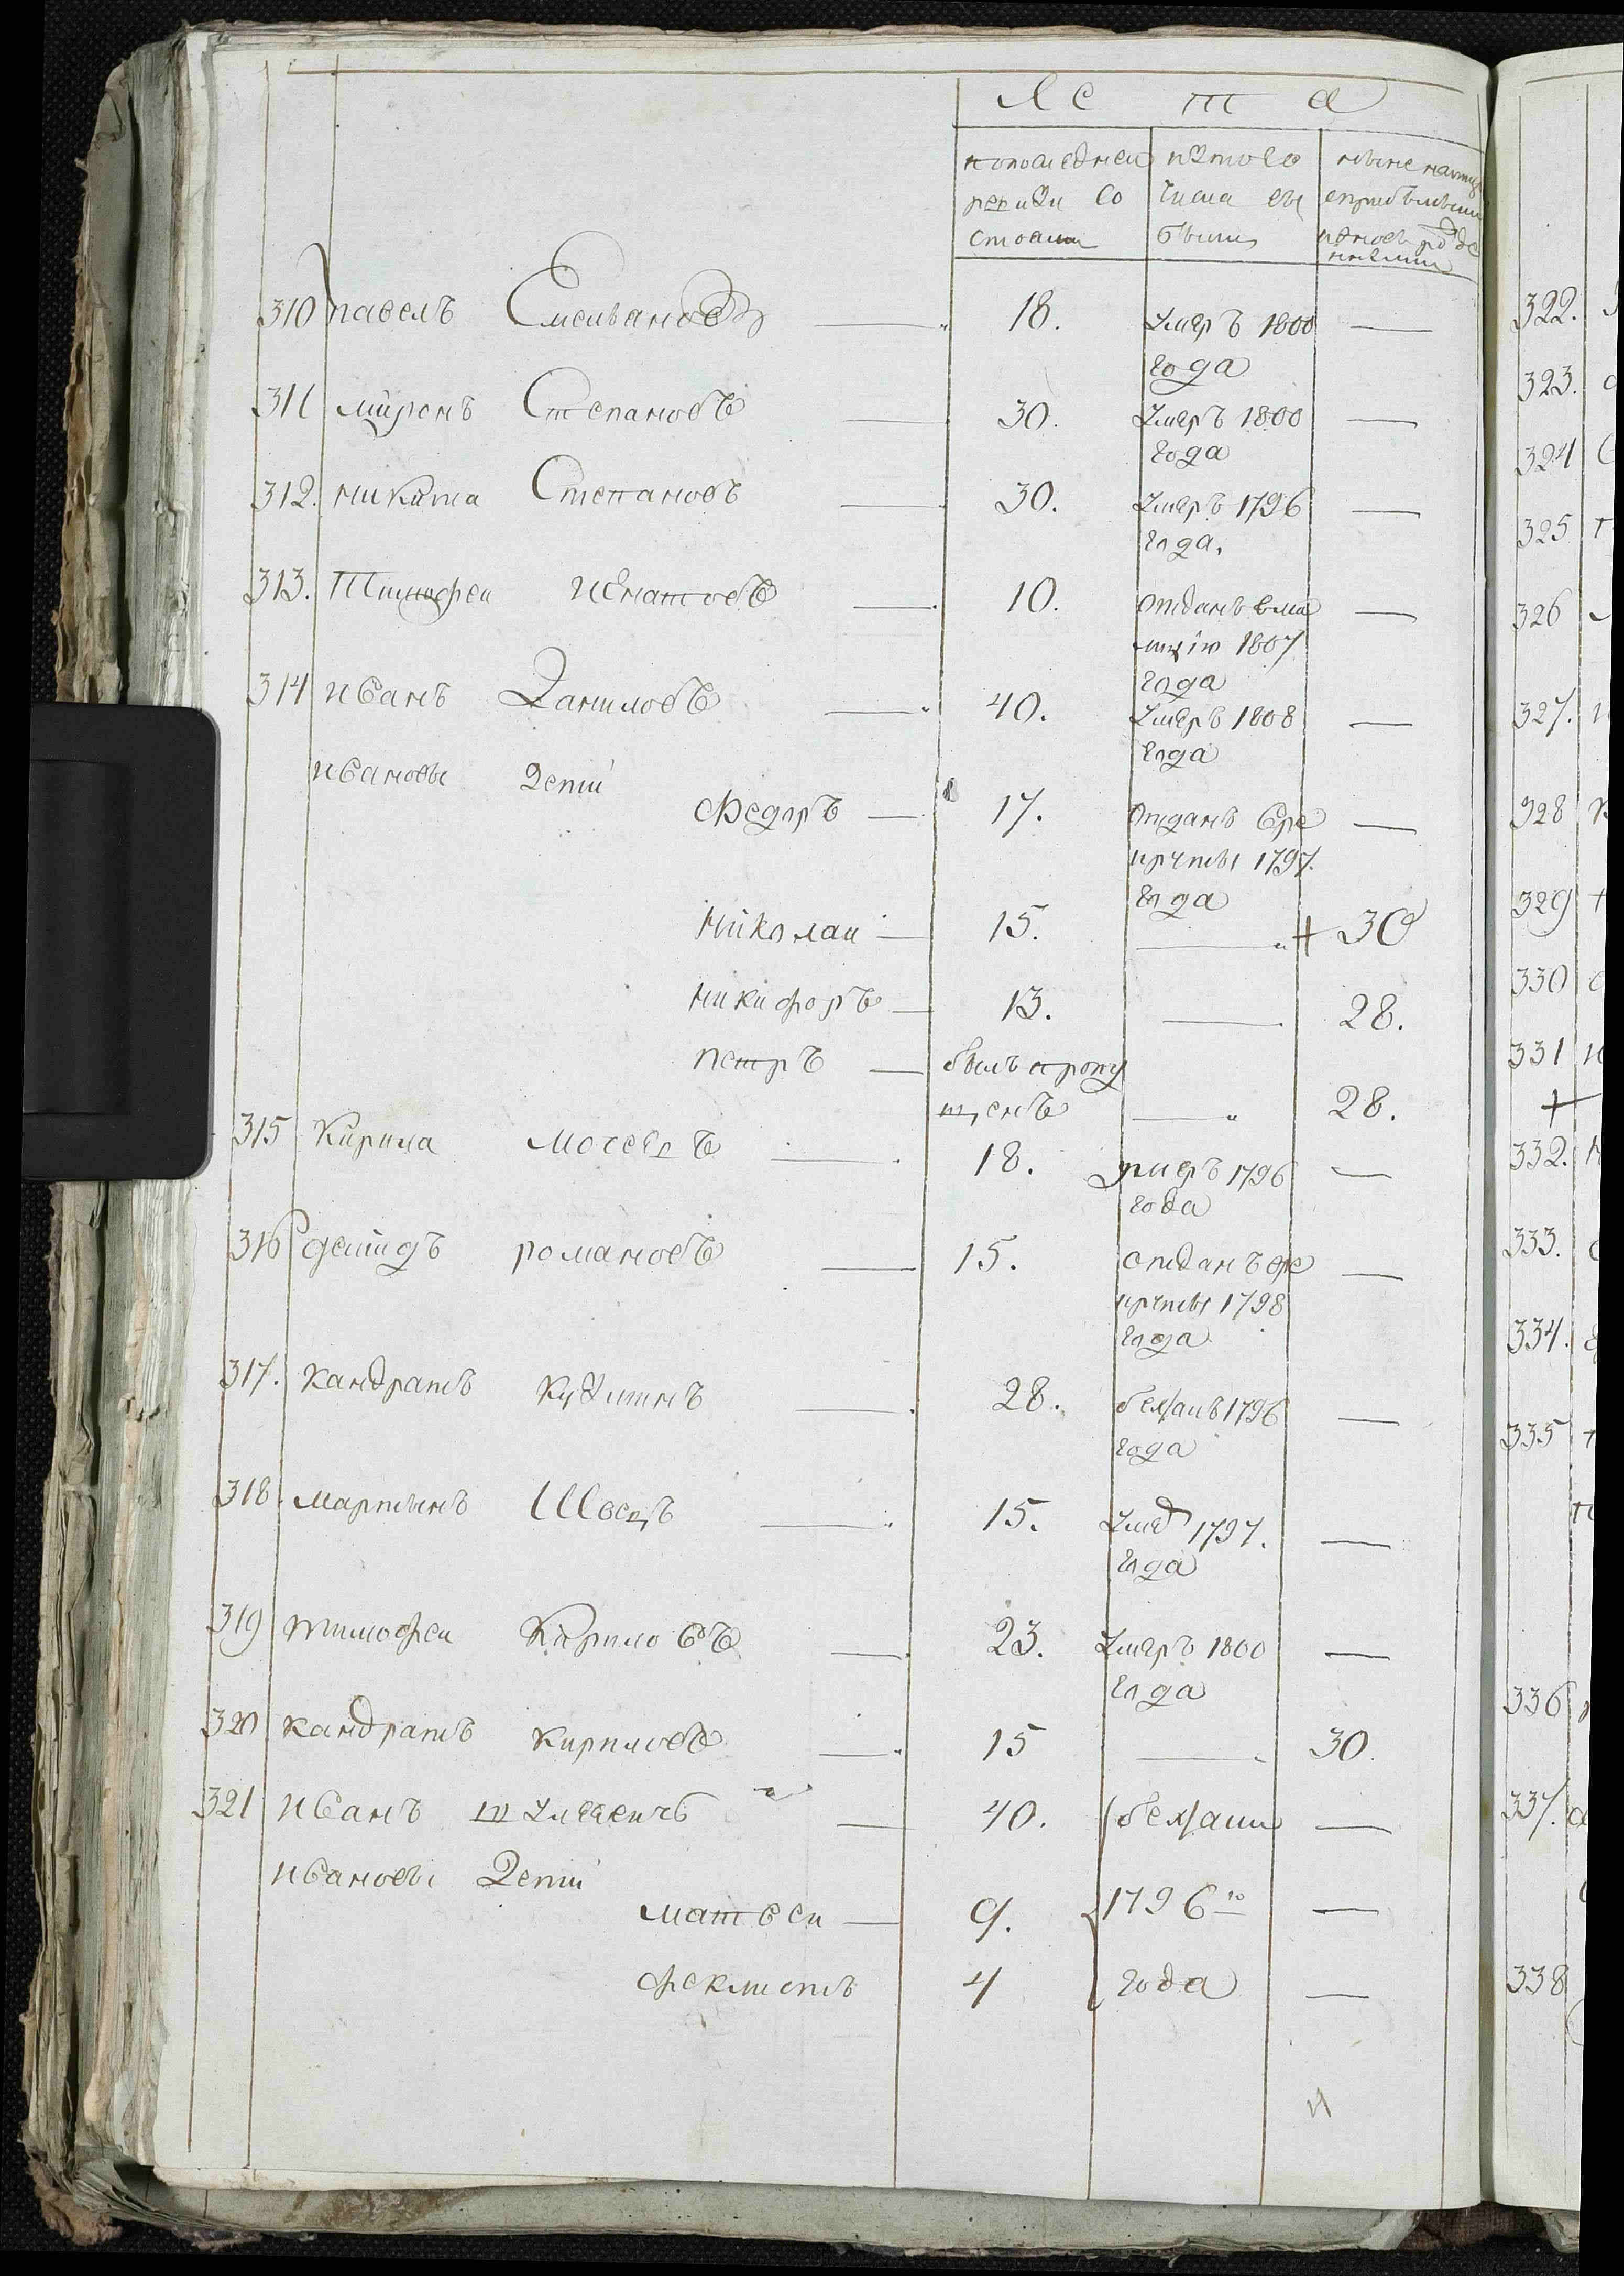 Лета
по последней ревизии состояли
из того числа выбыли
ныне на лицо с прибылыми и вновь рожденными
310 павелъ Емельановъ — 18. умеръ 1800 —
года
311 миронъ Степановъ — 30. умеръ 1800 —
года
312. никита Степановъ — 30. умеръ 1796 —
года.
313. Тимофеи игнатовъ — 10. отданъ вми —
лицiю 1807
года
314 иванъ Даниловъ — 40. умеръ 1808 —
года
ивановы Дети
Федоръ — 17. отданъ вре —
круты 1797.
года
николаи — 15. — + 30
никифоръ — 13. — 28.
петръ — былъ пропу
щенъ — 28.
315 Кирила мосеевъ — 18. умеръ 1796 —
года
316 демидъ романовъ — 15. отданъ вре —
круты 1798
года
317. кандратъ кузминъ — 28. бежалъ 1796 —
года
318. мартынъ Швецъ — 15. умер 1797. —
года
319 тимофеи Кириловъ — 23. умеръ 1800 —
года
320 кандратъ кириловъ — 15 — 30.
321 иванъ — 40. бежали —
ивановы Дети
матвеи — 9. 1796го —
феклистъ 4 года —
322.
323.
324
325
326
327.
328
329
330
331
+
332.
333.
334.
335
336
337.
338